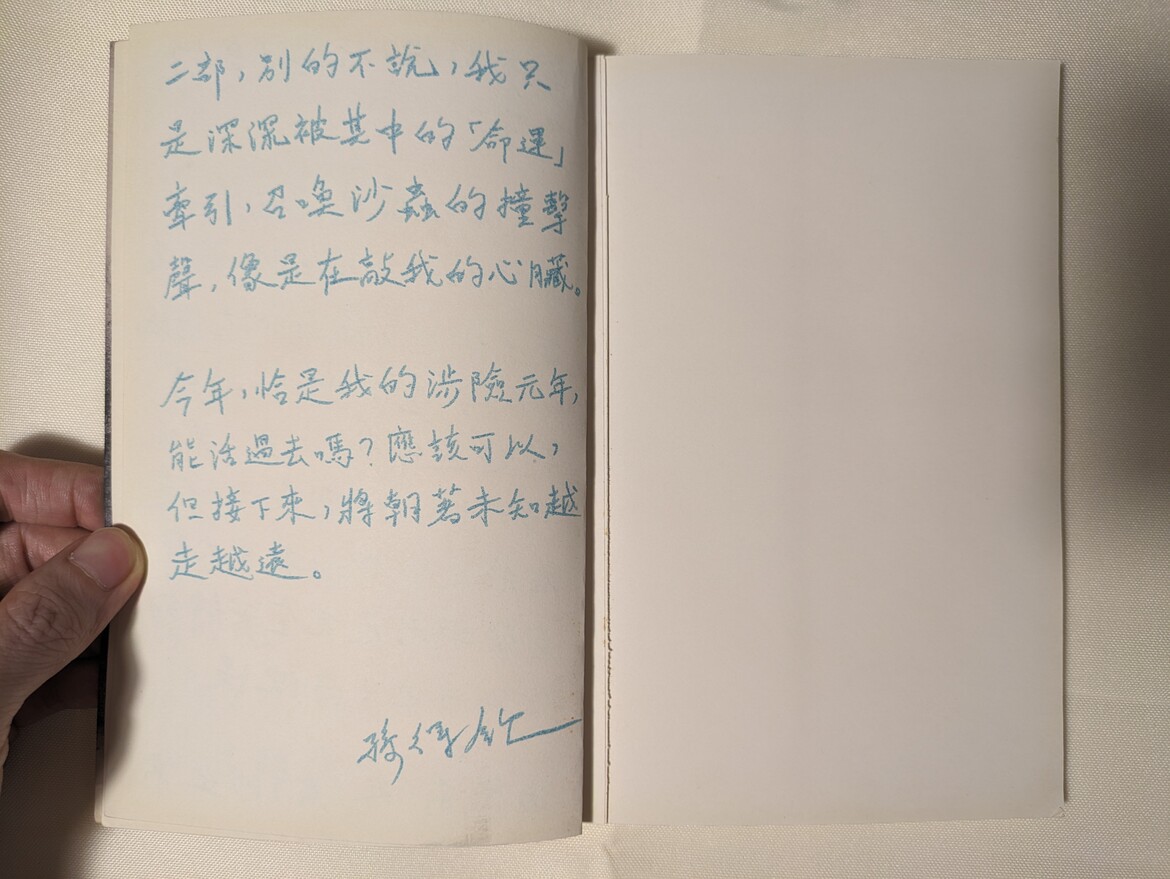 二部，別的不說，我只
是深深被其中的「命運」
牽引，召喚沙蟲的撞擊
聲，像是在敲我的心臟。
今年，恰是我的涉險元年，
能活過去嗎？應該可以，
但接下來，將朝著未知越
走越遠。
孫得欽